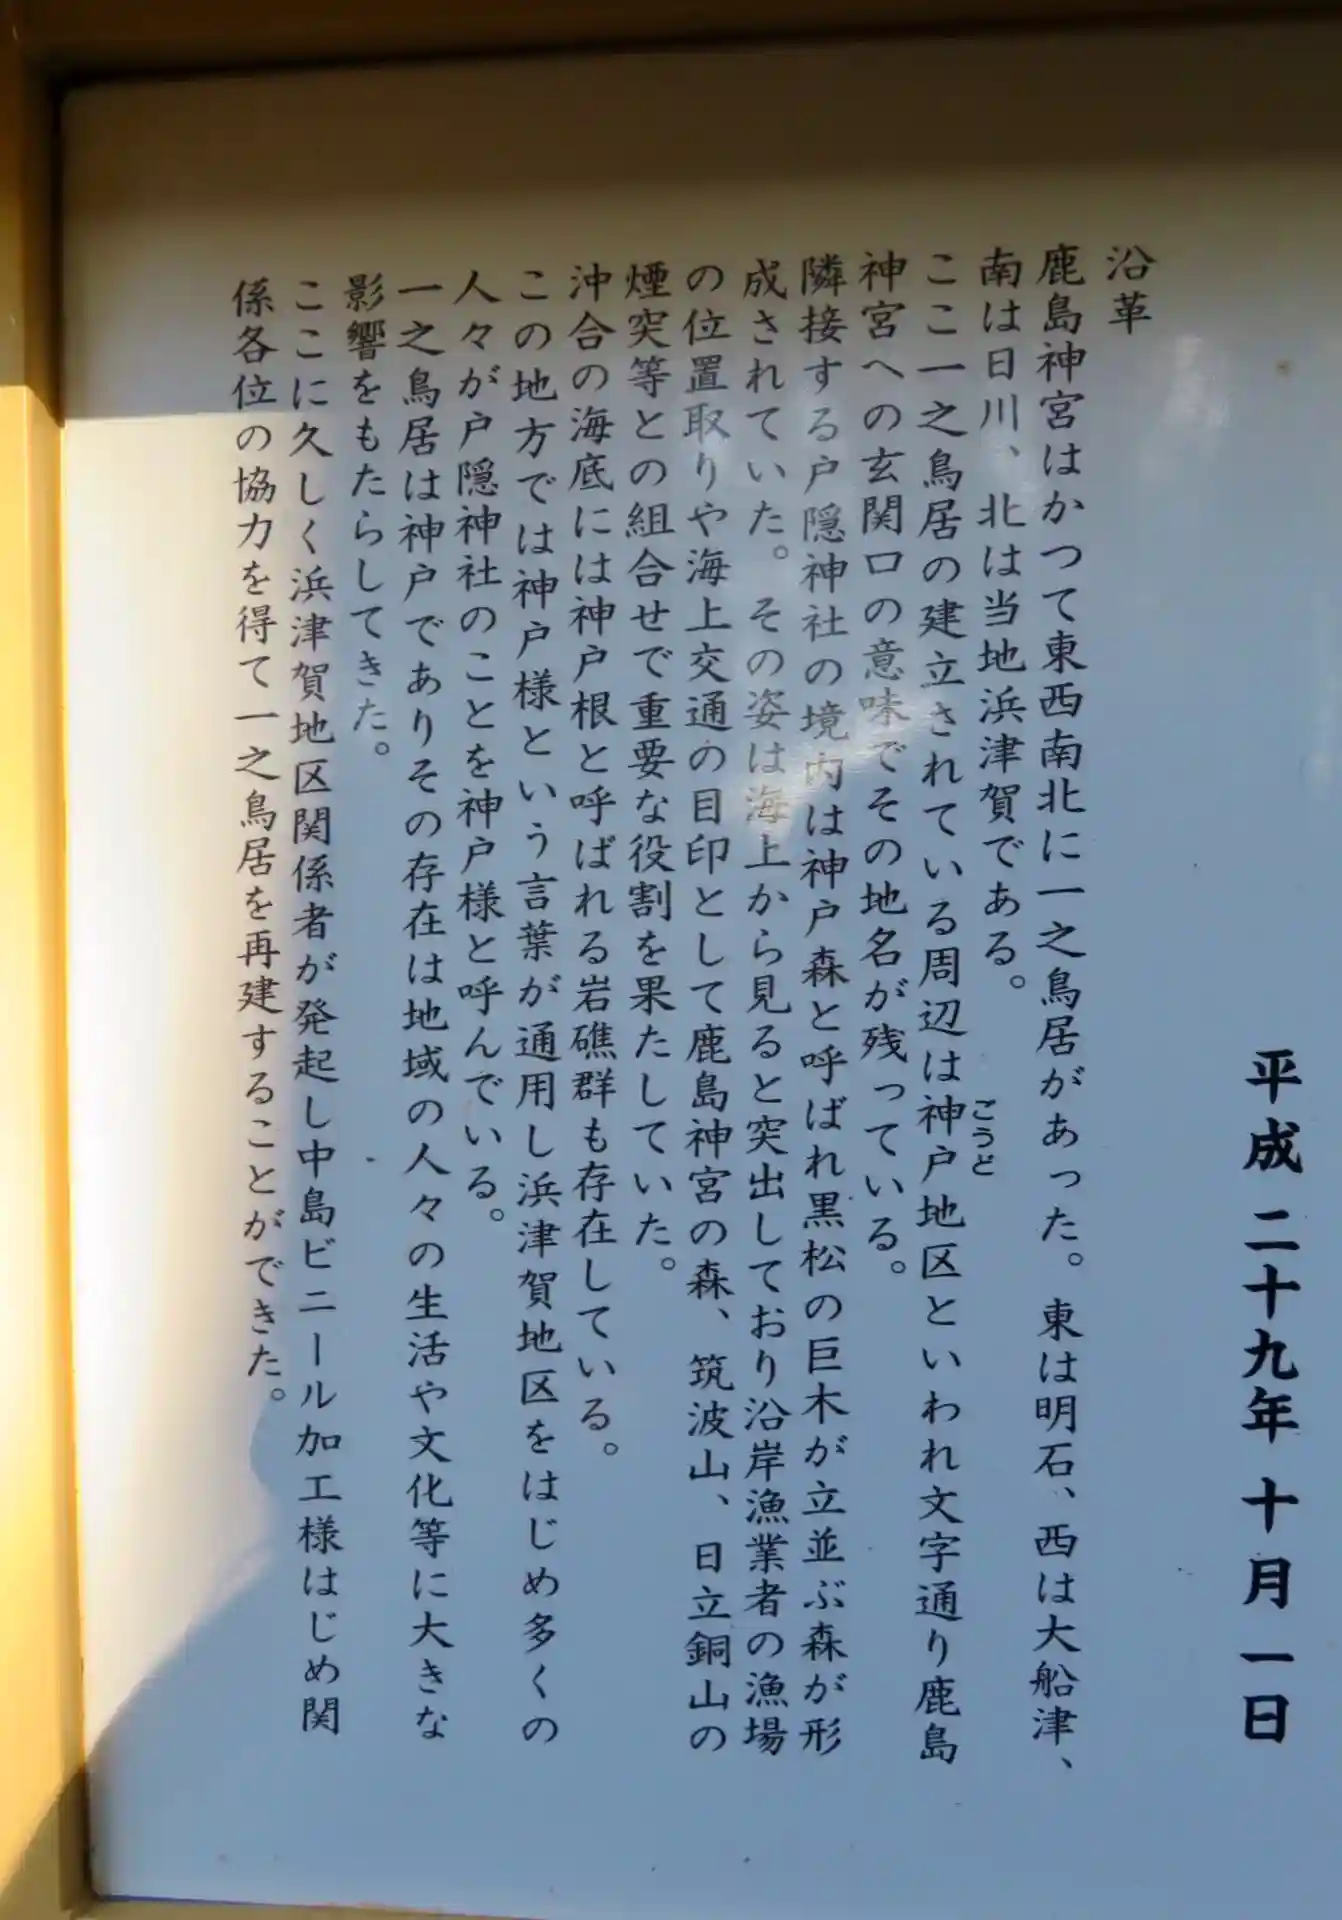 平成二十九年 十月一日
沿革
鹿島神宮はかつて東西南北に一之鳥居があった。東は明石、西は大船津、
南は日川、北は当地浜津賀である。
ここ一之鳥居の建立されている周辺は神戸地区といわれ文字通り鹿島
ごうど
神宮への玄関口の意味でその地名が残っている。
隣接する戸隠神社の境内は神戸森と呼ばれ黒松の巨木が立並ぶ森が形
成されていた。その姿は海上から見ると突出しており沿岸漁業者の漁場
の位置取りや海上交通の目印として鹿島神宮の森、筑波山、日立銅山の
煙突等との組合せで重要な役割を果たしていた。
沖合の海底には神戸根と呼ばれる岩礁群も存在している。
この地方では神戸様という言葉が通用し浜津賀地区をはじめ多くの
人々が戸隠神社のことを神戸様と呼んでいる。
一之鳥居は神戸でありその存在は地域の人々の生活や文化等に大きな
影響をもたらしてきた。
ここに久しく浜津賀地区関係者が発起し中島ビニール加工様はじめ関
係各位の協力を得て一之鳥居を再建することができた。